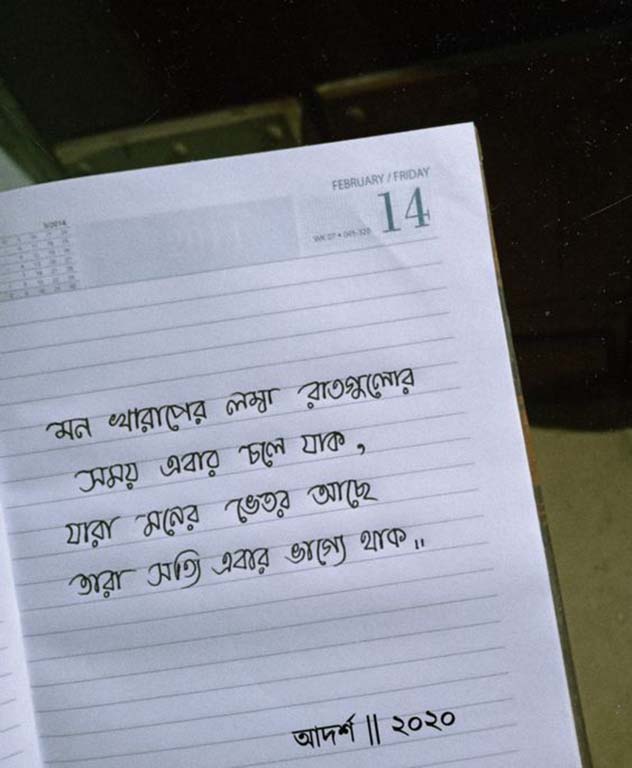 FEBRUARY / FRIDAY
14
মন খারাপের লম্বা রাতগুলোর
সময় এবার চলে যাক,
যারা মনের ভেতর আছে
তারা সত্যি এবার ভাগ্যে থাক ॥
আদর্শ || ২০২০